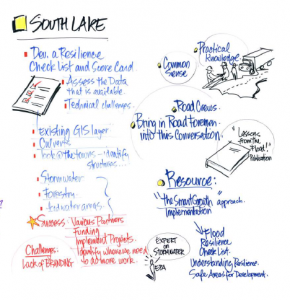 SOUTH LAKE
Dev. a Resilience
Check List and Score Card
Assess the Data
that is available.
Technical challenges.
Existing GIS layer
Culverts
Look @ the towns -
structures...
Stormwater
Forestry
Success - Various Partners
Funding
Implement Projects.
Identify who may need
to do more work.
Challenges
Lack of BRANDING
Common
Sense
Practical
Knowledge
Road Crews.
Bring in Road Foremen
into this Conversation.
"Lessons
from the
Flood"
Publication
Resource:
"The Smart Growth approach.
Implementation
Flood
Resilience
Check List.
Understanding Resilience.
Safe Areas for Development.
EXPERT
ON
STORMWATER
EPA